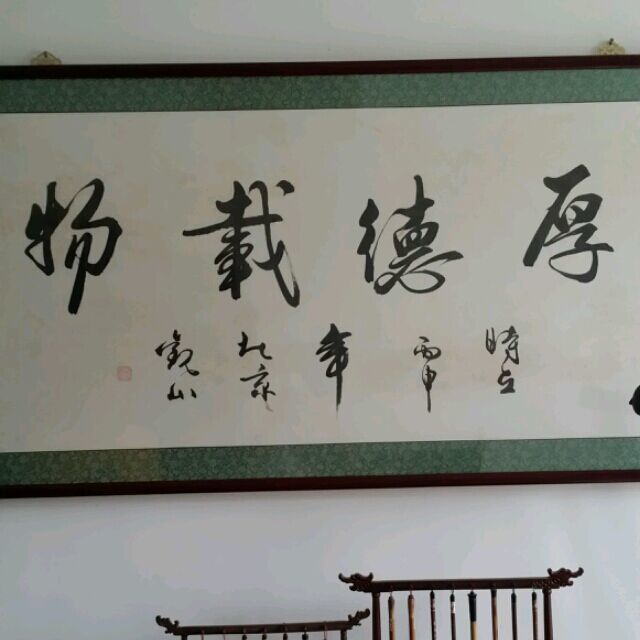 厚德载物
時在丙申年北京觀山